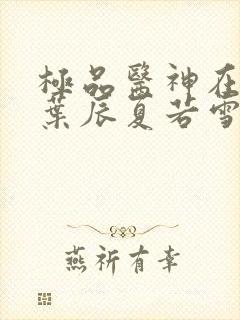 極品醫神在
葉辰夏若雪
燕祈有幸